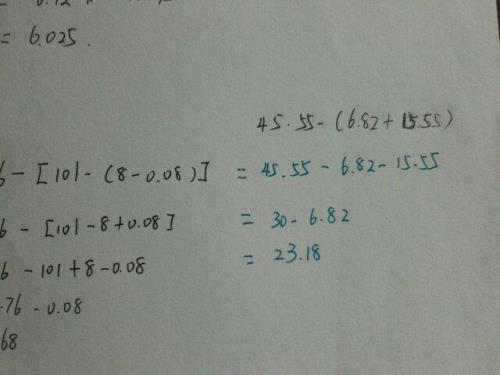 = 6.025.
45.55-(6.82+15.55)
6-[101-(8-0.08)] = 45.55-6.82-15.55
6-[101-8+0.08] = 30-6.82
6-101+8-0.08 = 23.18
.76-0.08
68